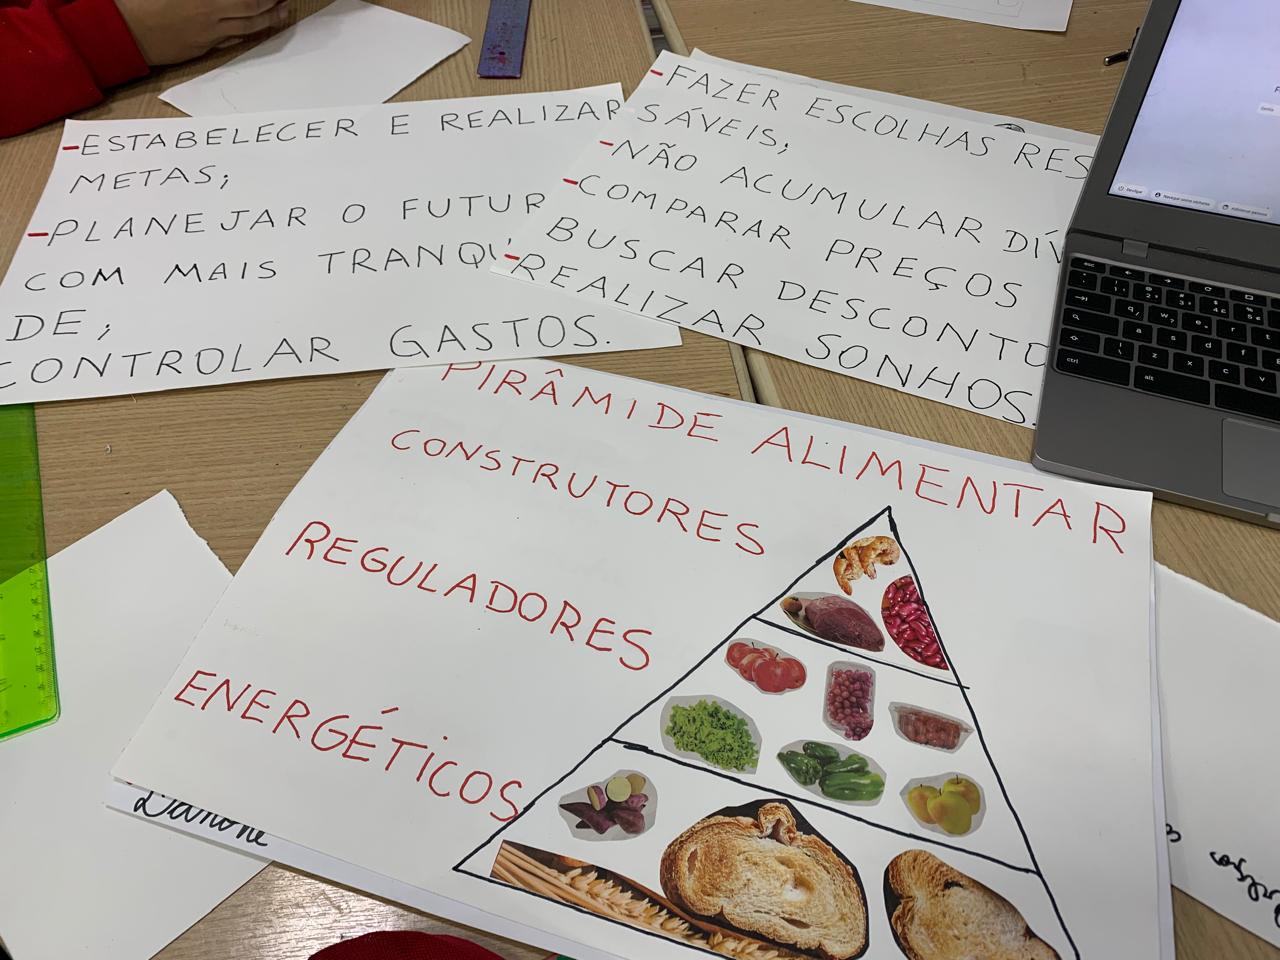 -ESTABELECER E REALIZAR
METAS;
-PLANEJAR O FUTUR
COM MAIS TRANQUI
DE;
CONTROLAR GASTOS.
-FAZER ESCOLHAS RES
SÁVEIS;
-NÃO ACUMULAR DÍV
-COMPARAR PREÇOS
BUSCAR DESCONTO
-REALIZAR SONHOS.
PIRÂMIDE ALIMENTAR
CONSTRUTORES
REGULADORES
ENERGÉTICOS
Danone